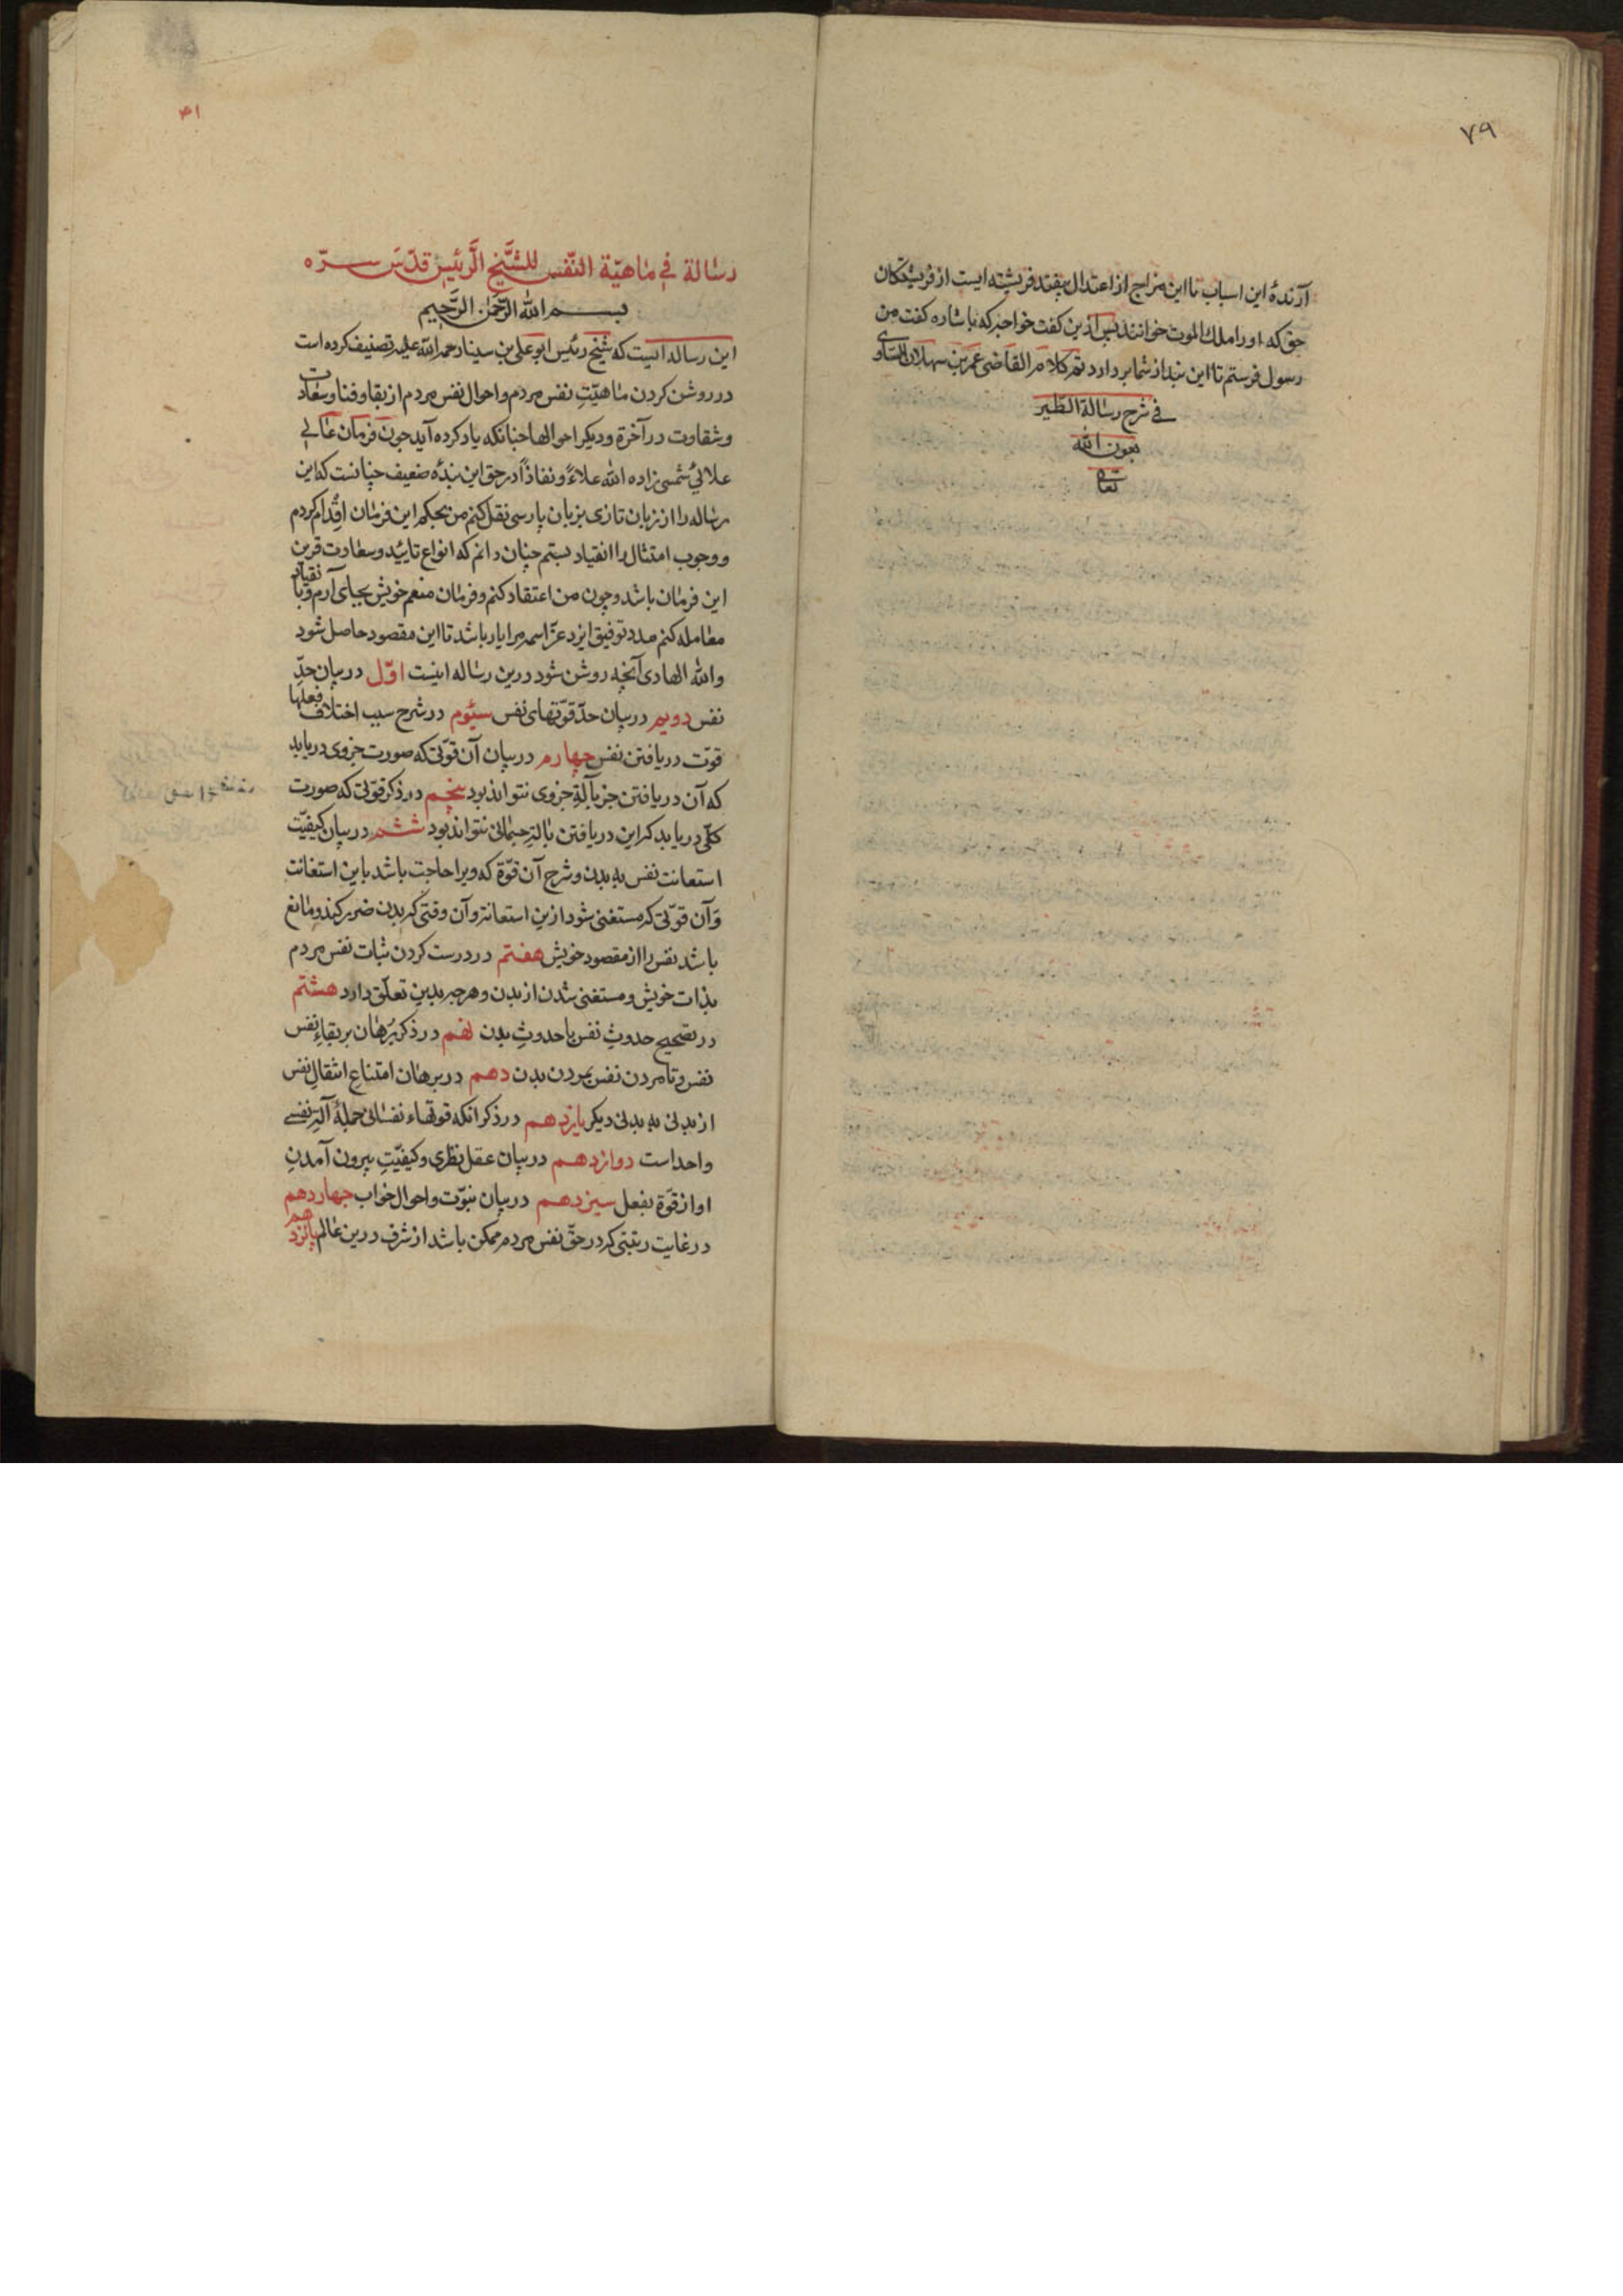 ۷۹
آرندهٔ این اسباب تا این مزاج از اعتدال بیفتد فریشته ایست از فریشتکان
حق که او را ملك الموت خوانند پس ازین کفت خواجه که باشاره کفت من
رسول فرستم تا این بند از شما بردارد تم کلام القاضی عمر بن سهلان الساوی
فی شرح رسالة الطّیر
بعون الله
تعالی
۴۱
رسالة فی ماهیّة النّفس للشّیخ الرّئیس قدّس سرّه
بسم الله الرّحمن الرّحیم
این رساله ایست که شیخ رئیس ابو علی بن سینا رحمة الله علیه تصنیف کرده است
در روشن کردن ماهیّتِ نفس مردم و احوال نفس مردم از بقا و فنا و سعادت
و شقاوت در آخرة و دیکر احوالها چنانکه یاد کرده آید چون فرمان عالی
علائی شمسی زاده الله علاءً و نفاذاً در حق این بندهٔ ضعیف چنانست که این
رساله را از زبان تازی بزبان پارسی نقل کنم من بحکم این فرمان اقدام کردم
و وجوب امتثال را انقیاد بستم چنان دانم که انواع تایید و سعادت قرین
این فرمان باشد و چون من اعتقاد کنم و فرمان منعم خویش بجای آرم و با نقیاد
معامله کنم مدد توفیق ایزد عزّ اسمه مرا یار باشد تا این مقصود حاصل شود
والله الهادی آنچه روشن شود درین رساله اینست اوّل در بیان حدِّ
نفس دویم در بیان حدّ قوّتهای نفس سیّوم در شرح سبب اختلاف فعلها
قوّت دریافتن نفس چهارم در بیان آن قوّتی که صورت جزوی دریابد
که آن دریافتن جز بآلةِ جزوی نتواند بود پنجم در ذکر قوّتی که صورت
کلّی دریابد که این دریافتن بالتِ جسمانی نتواند بود ششم در بیان کیفیّت
استعانت نفس به بدن و شرح آن قوّة که ویرا حاجت باشد باین استعانت
و آن قوّتی که مستغنی شود ازین استعانة و آن وقتی که بدن ضرر کند و مانع
باشد نفس را از مقصود خویش هفتم در درست کردن ثبات نفس مردم
بذات خویش و مستغنی شدن از بدن و هر چه ببدن تعلّق دارد هشتم
در تصحیح حدوثِ نفس با حدوثِ بدن نهم در ذکر بُرهان بر بقاءِ نفس
نفس و نامردن نفس بمردن بدن دهم در برهان امتناعِ انتقالِ نفس
از بدنی به بدنی دیکر یازدهم در ذکر انکه قوتهاء نفسانی جملهٔ آلتِ نفسی
واحد است دوازدهم در بیان عقل نظری و کیفیّتِ بیرون آمدنِ
او از قوّة بفعل سیزدهم در بیان نبوّت و احوال خواب چهاردهم
در غایت رتبتی که در حقّ نفس مردم ممکن باشد از شرف درین عالم پانزدهم